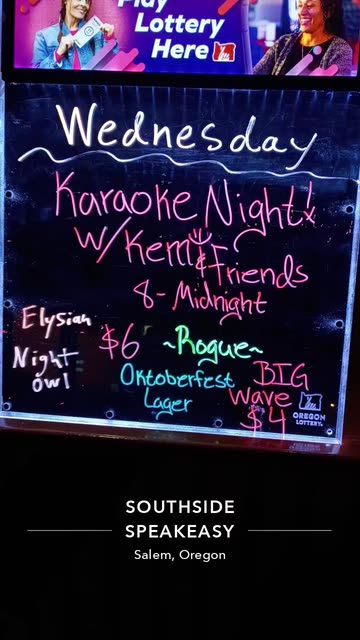 Play
Lottery
Here
Wednesday
Karaoke Night!
w/Kerri & Friends
8-Midnight
Elysian
Night
Owl
$6
~Rogue~
Oktoberfest
Lager
BIG
Wave
$4
OREGON
LOTTERY
SOUTHSIDE
SPEAKEASY
Salem, Oregon